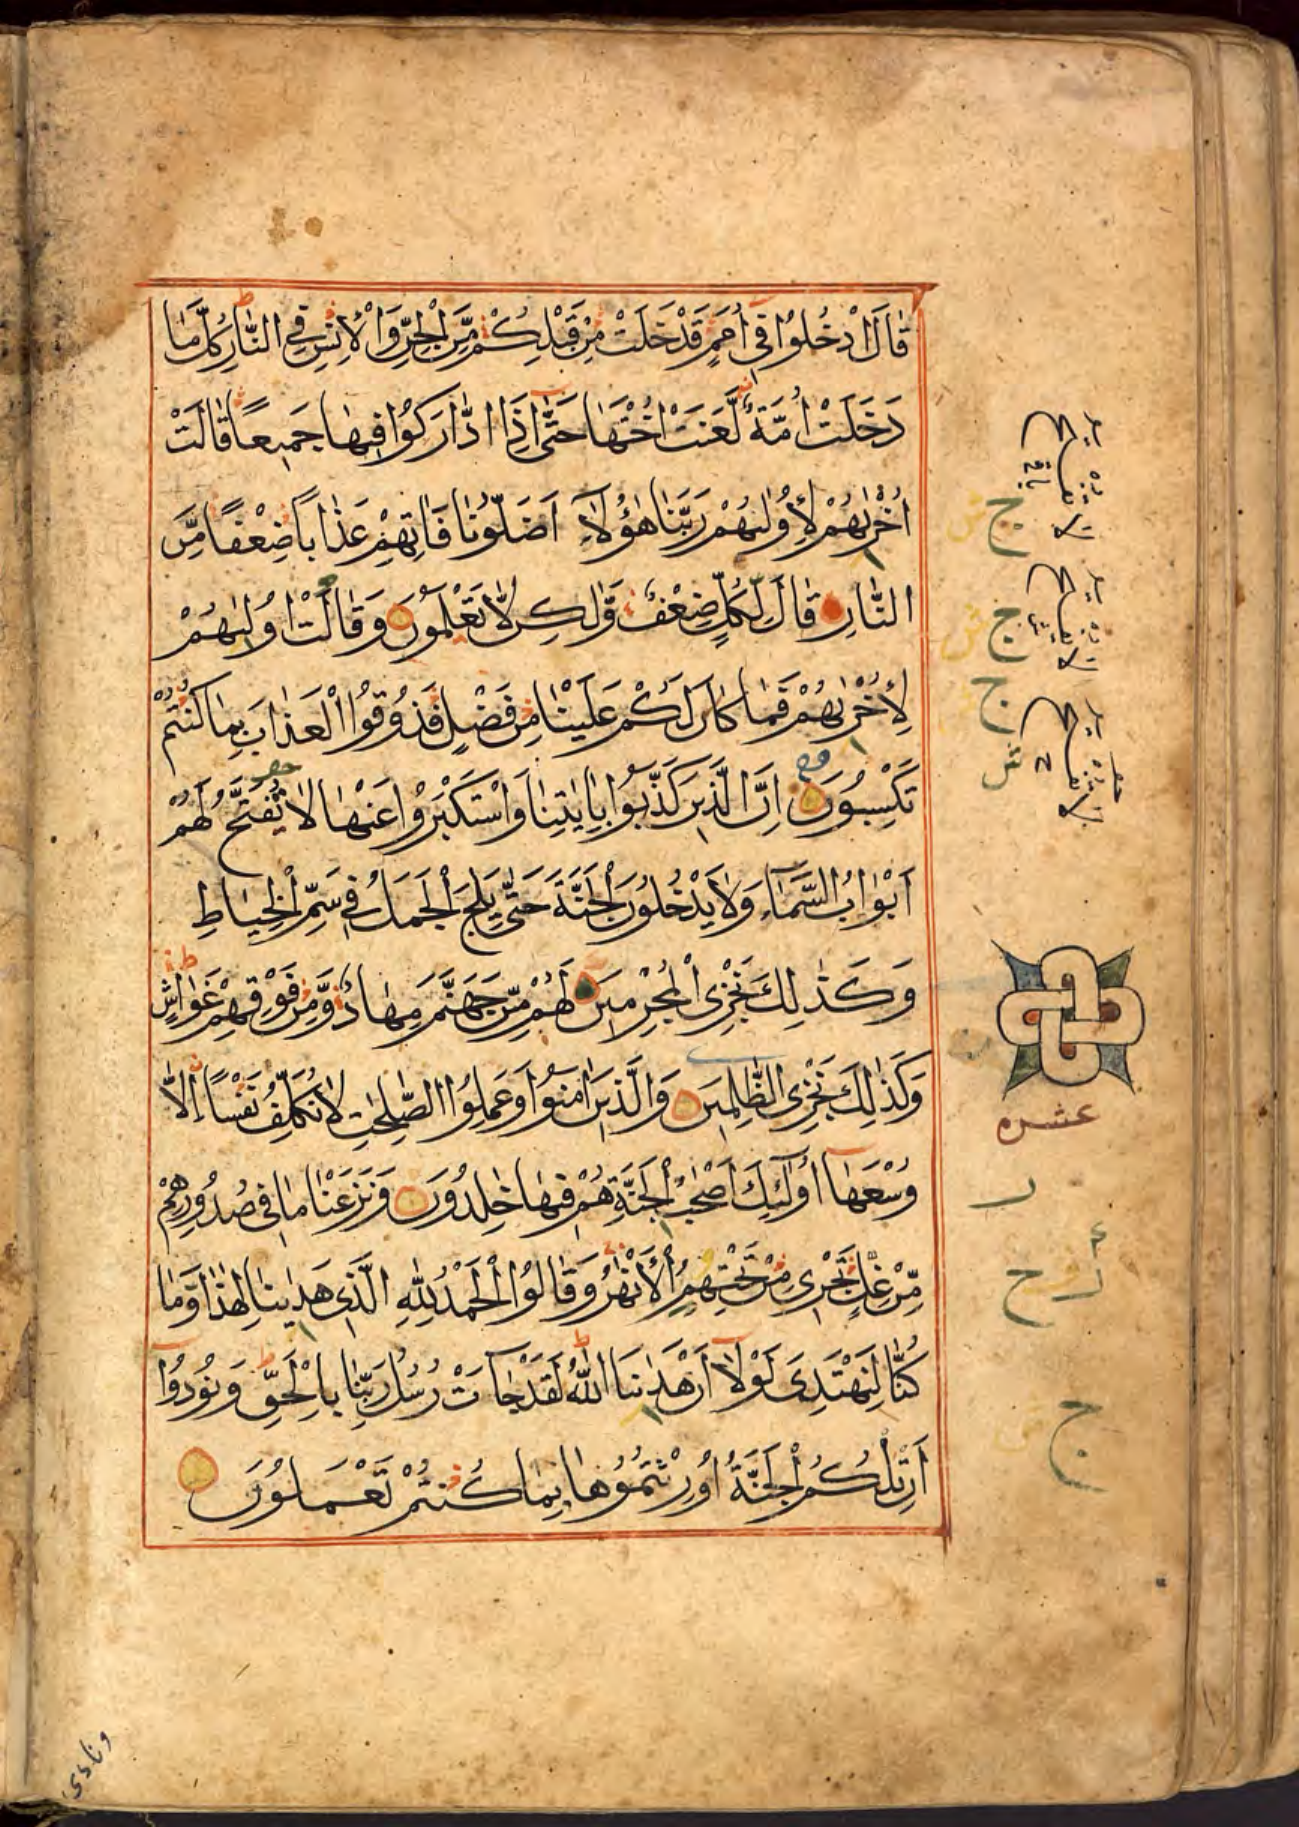 قَالَ ادْخُلُوا فِي أُمَمٍ قَدْ خَلَتْ مِنْ قَبْلِكُمْ مِنَ الْجِنِّ وَالْإِنْسِ فِي النَّارِ كُلَّمَا
دَخَلَتْ أُمَّةٌ لَعَنَتْ أُخْتَهَا حَتَّى إِذَا ادَّارَكُوا فِيهَا جَمِيعًا قَالَتْ
أُخْرٰىهُمْ لِأُولٰىهُمْ رَبَّنَا هٰؤُلَاءِ أَضَلُّونَا فَاٰتِهِمْ عَذَابًا ضِعْفًا مِنَ
النَّارِ قَالَ لِكُلٍّ ضِعْفٌ وَلٰكِنْ لَا تَعْلَمُونَ وَقَالَتْ أُولٰىهُمْ
لِأُخْرٰىهُمْ فَمَا كَانَ لَكُمْ عَلَيْنَا مِنْ فَضْلٍ فَذُوقُوا الْعَذَابَ بِمَا كُنْتُمْ
تَكْسِبُونَ إِنَّ الَّذِينَ كَذَّبُوا بِاٰيَاتِنَا وَاسْتَكْبَرُوا عَنْهَا لَا تُفَتَّحُ لَهُمْ
أَبْوَابُ السَّمَاءِ وَلَا يَدْخُلُونَ الْجَنَّةَ حَتَّى يَلِجَ الْجَمَلُ فِي سَمِّ الْخِيَاطِ
وَكَذٰلِكَ نَجْزِي الْمُجْرِمِينَ لَهُمْ مِنْ جَهَنَّمَ مِهَادٌ وَمِنْ فَوْقِهِمْ غَوَاشٍ
وَكَذٰلِكَ نَجْزِي الظَّالِمِينَ وَالَّذِينَ اٰمَنُوا وَعَمِلُوا الصّٰلِحٰتِ لَا نُكَلِّفُ نَفْسًا إِلَّا
وُسْعَهَا أُولٰئِكَ أَصْحٰبُ الْجَنَّةِ هُمْ فِيهَا خٰلِدُونَ وَنَزَعْنَا مَا فِي صُدُورِهِمْ
مِنْ غِلٍّ تَجْرِي مِنْ تَحْتِهِمُ الْأَنْهٰرُ وَقَالُوا الْحَمْدُ لِلّٰهِ الَّذِي هَدٰينَا لِهٰذَا وَمَا
كُنَّا لِنَهْتَدِيَ لَوْلَا أَنْ هَدٰينَا اللّٰهُ لَقَدْ جَاءَتْ رُسُلُ رَبِّنَا بِالْحَقِّ وَنُودُوا
أَنْ تِلْكُمُ الْجَنَّةُ أُورِثْتُمُوهَا بِمَا كُنْتُمْ تَعْمَلُونَ
عشره
ونادى